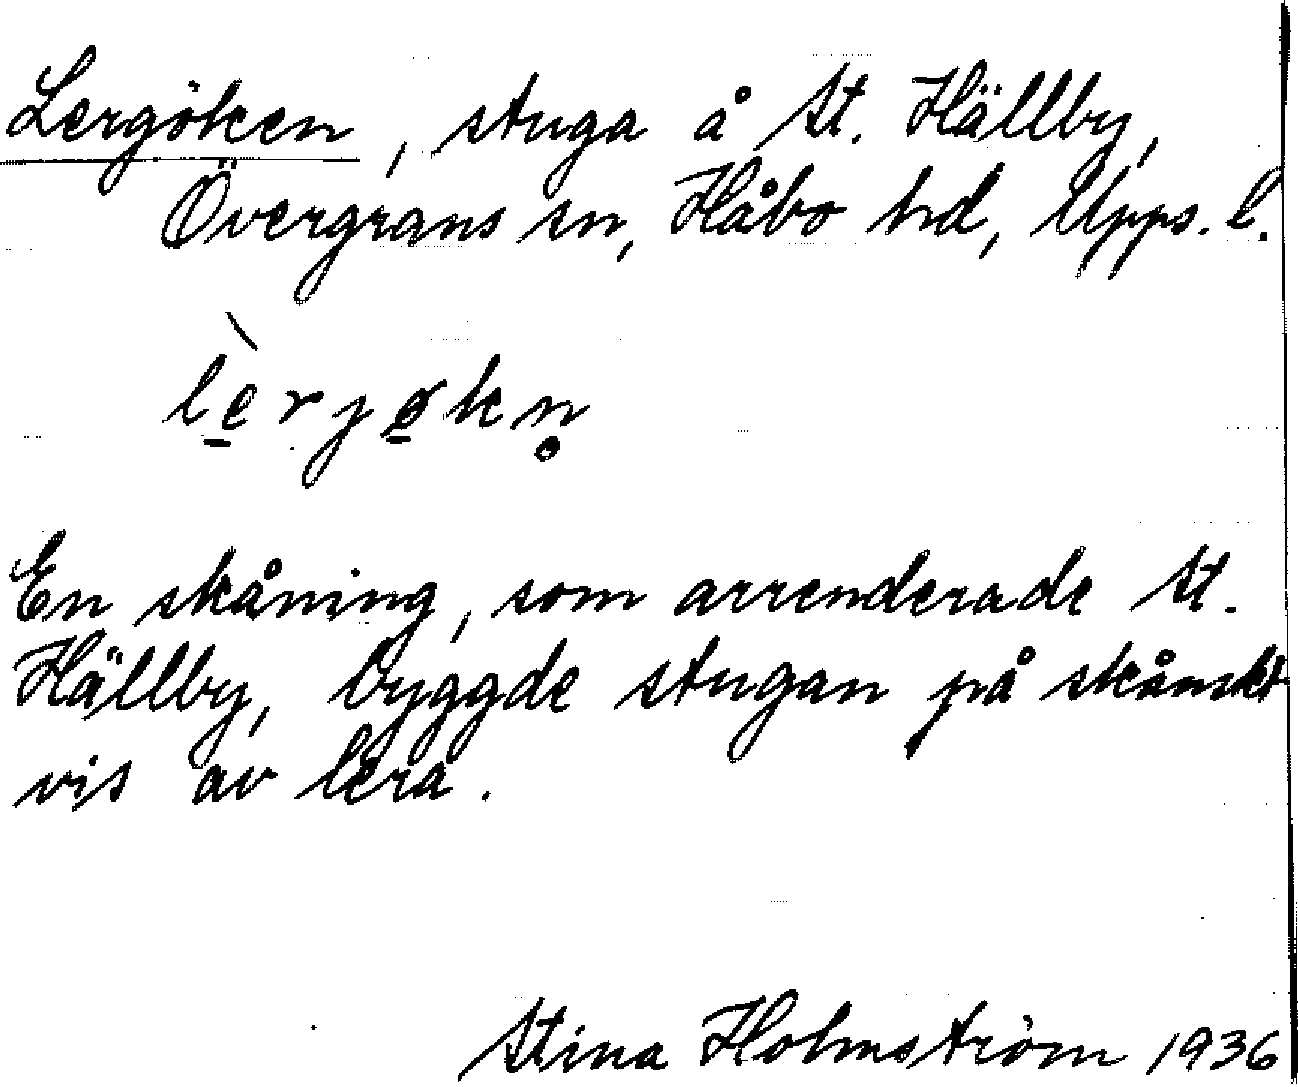 Lergöken, stuga å St. Hällby,
Övergrans sn, Håbo hd, Upps. l.
lè̠rjø̠kn̥
En skåning, som arrenderade St.
Hällby, byggde stugan på skånskt
vis av lera.
Stina Holmström 1936